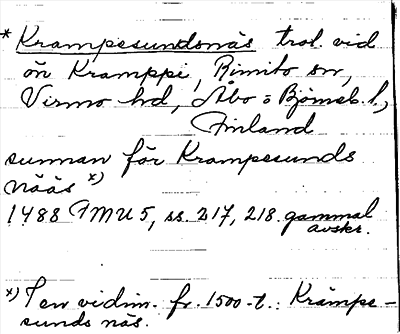 * Krampesundsnäs trol. vid
ön Kramppi, Rimito sn,
Virmo hd, Åbo o Björneb. l.,
Finland
sunnan för Krampesunds
nääs x)
1488 FMU 5, ss. 217, 218. gammal
avskr.
x) I en vidim. fr. 1500-t.: Krämpe-
sunds näs.